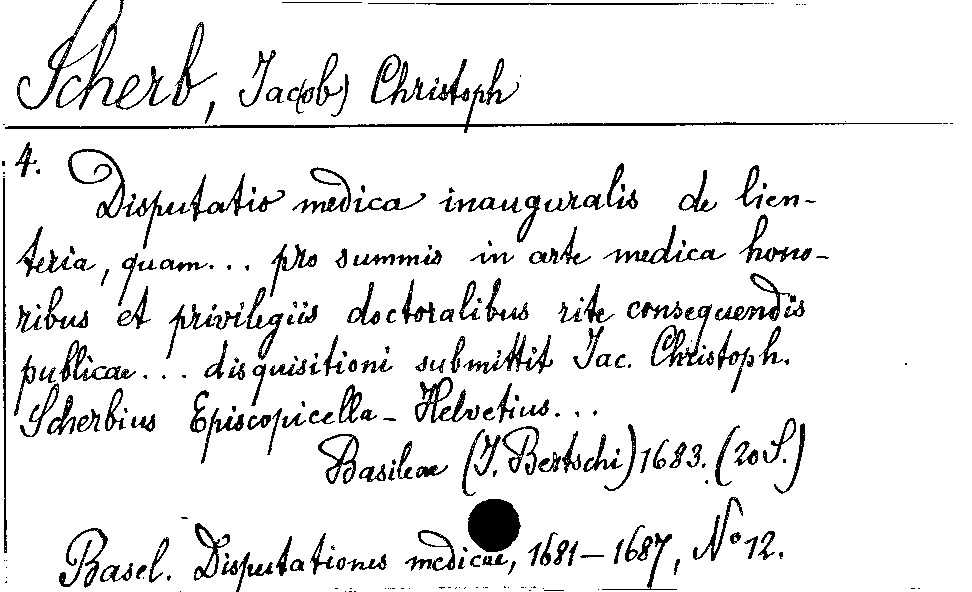 Scherb, Jac(ob) Christoph
4.
Disputatio medica inauguralis de lien-
teria, quam... pro summis in arte medica hono-
ribus et privilegiis doctoralibus rite consequendis
publicae... disquisitioni submittit Jac. Christoph.
Scherbius Episcopicella-Helvetius...
Basileae (J. Bertschi) 1683. (20 S.)
Basel. Disputationes medicae, 1681-1687, No 12.